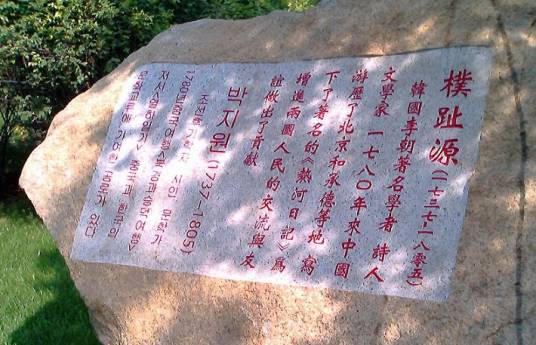 樸趾源(一七三七-一八零五)
韓國李朝著名學者 詩人
文學家 一七八〇年來中國
游歷了北京和承德等地 寫
下了著名的《熱河日記》爲
增進兩國人民的交流與友
誼做出了貢獻
박지원(1737-1805)
조선후기학자 시인 문학가
1780년중국여행<북경과승덕여행>
저서<열하일기> 중국과 한국의
문화교류에 기여한 공로가 있다